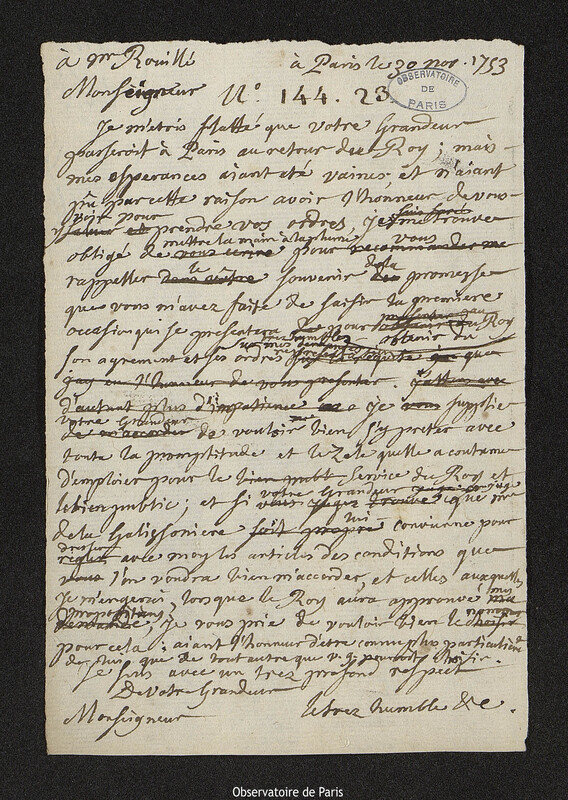 à mr Rouillé à Paris le 30 nov. 1753
OBSERVATOIRE DE PARIS
Monseigneur
N.o 144. 23.
Je m'etois flatté que votre Grandeur
passeroit à Paris au retour du Roy; mais
mes esperances aiant eté vaines et n'aiant
pû par cette raison avoir l'honneur de vous
voir pour
prendre vos ordres, je me trouve
mettre la main à la plume
obligé de vous ecrire pour vous recommander me
rappeller le souvenir de la promesse
que vous m'avez faite de saisir la premiere
occasion qui se presentera pour obtenir du Roy
son agrement et ses ordres que
j'ay eu l'honneur de vous presenter. j'attens avec
d'autant plus d'impatience je vous supplie
votre Grandeur
de m'accorder de vouloir bien s'y preter avec
toute la promptitude et le zele qu'elle a coutume
d'emploier pour le bien publ. service du Roy et
le bien public; et si votre Grandeur trouve que mr
de la Galissoniere soit propre lui convienne pour
dresser
regler avec moy les articles des conditions que
vous l'on voudra bien m'accorder, et celles auxquelles
je m'engerai, lorsque le Roy aura approuvé mes
propositions, je vous prie de vouloir bien le choisir
pour cela; aiant l'honneur d'etre connu plus particulierem.t
de lui que de tout autre que v. g. pourroit choisir.
Je suis avec un trez profond respect
De votre Grandeur
Monseigneur le trez humble &c.
Observatoire de Paris